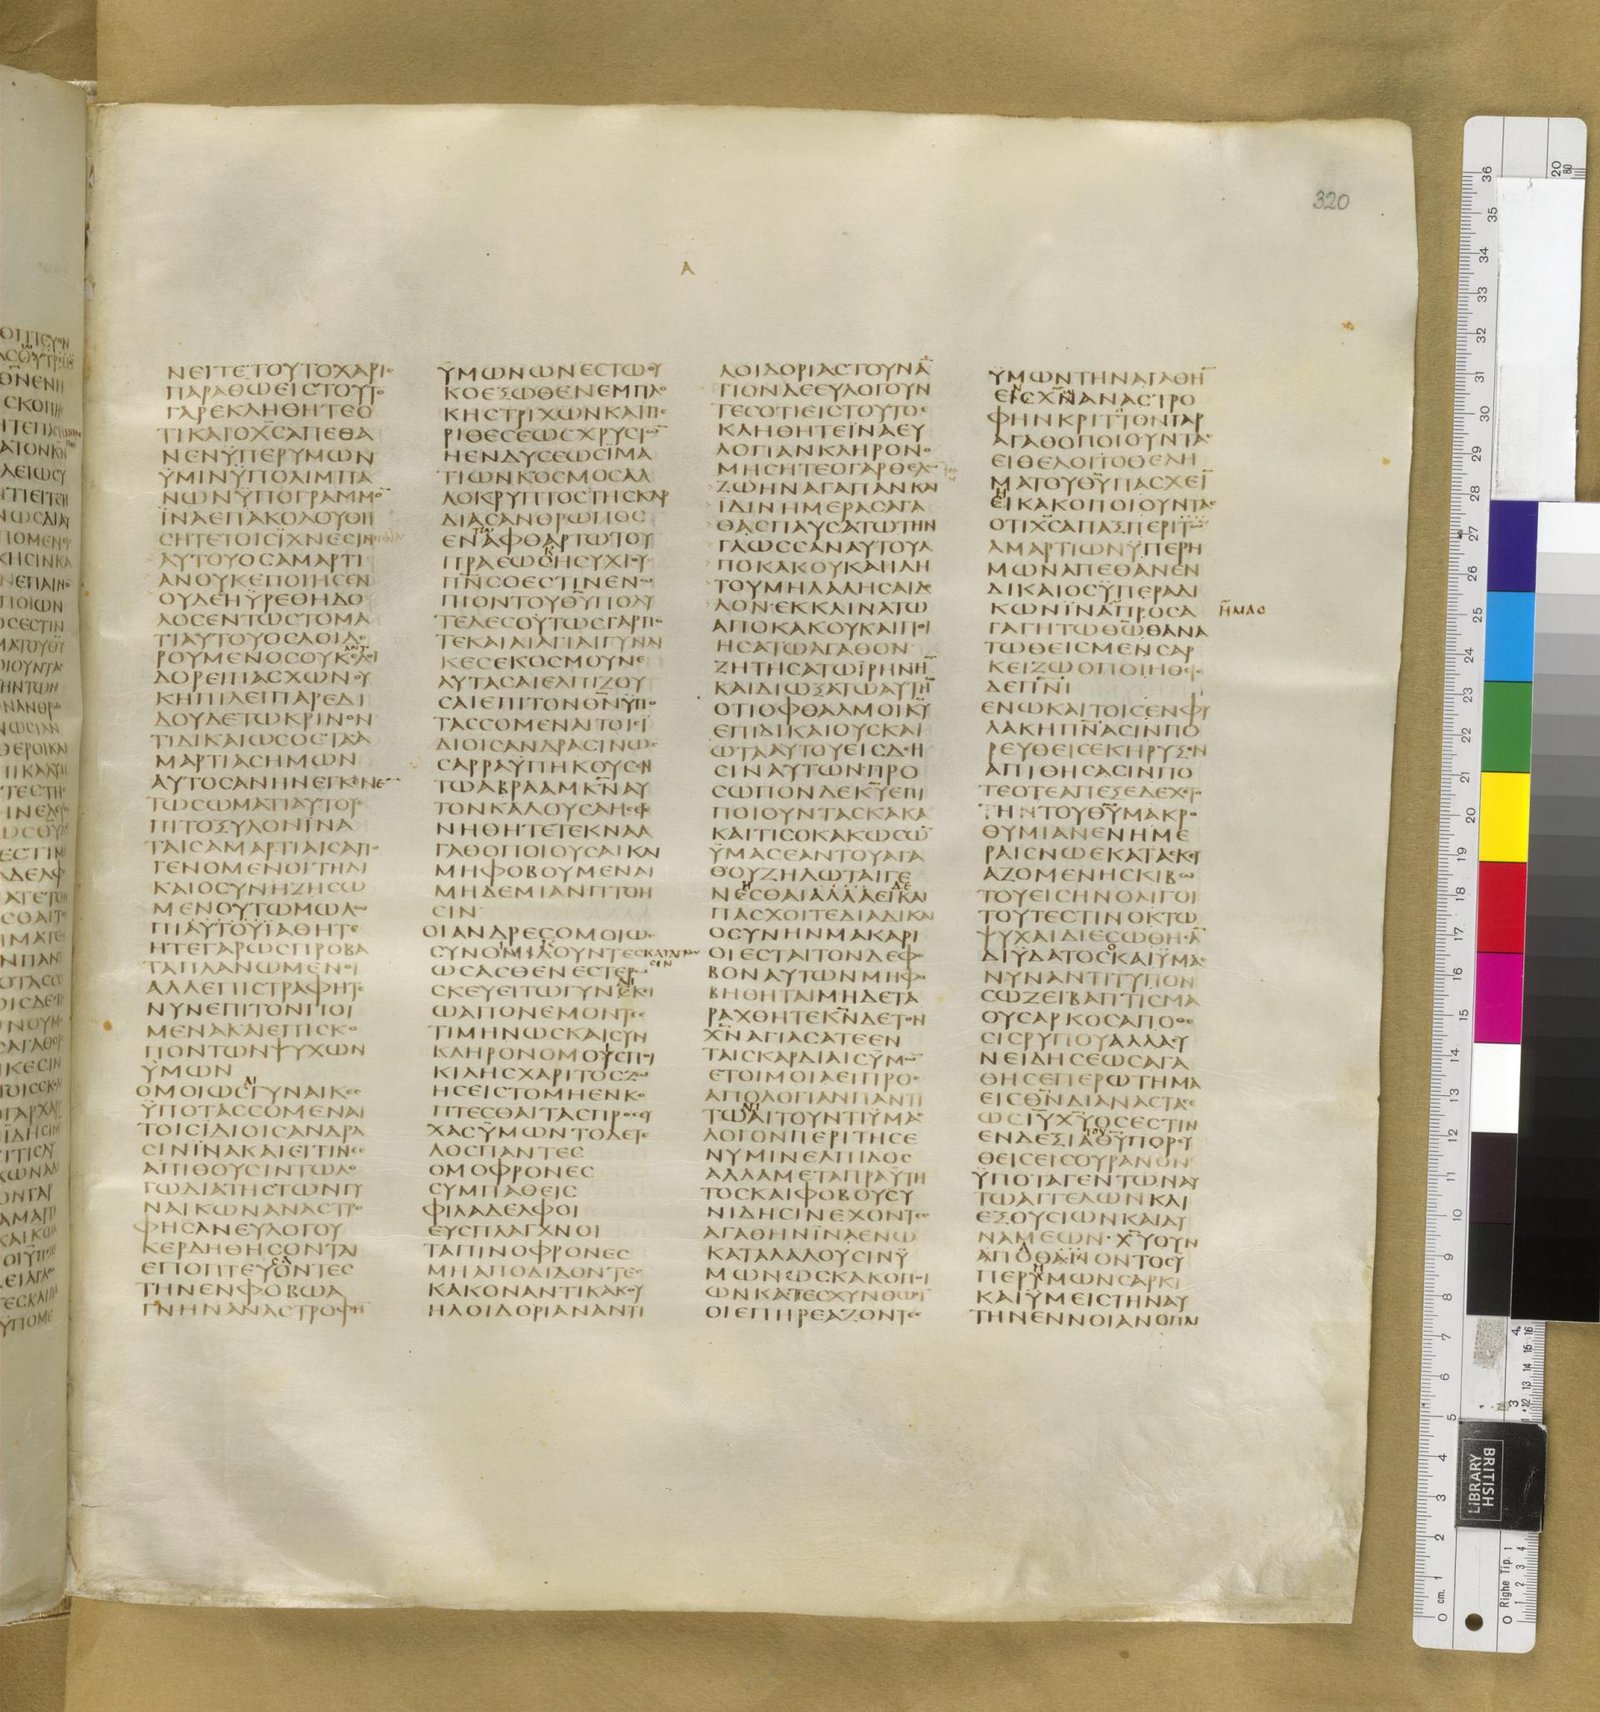 320
Α
ΝΕΙΤΕΤΟΥΤΟΧΑΡΙϲ
ΠΑΡΑΘΩΕΙϹΤΟΥΤο
ΓΑΡΕΚΛΗΘΗΤΕΟ
ΤΙΚΑΙΟΧ̅Ϲ̅ΑΠΕΘΑ
ΝΕΝΫΠΕΡΥΜΩΝ
ΫΜΙΝΫΠΟΛΙΜΠΑ
ΝΩΝΫΠΟΓΡΑΜΜΟ̅
ΪΝΑΕΠΑΚΟΛΟΥΘΗ
ϹΗΤΕΤΟΙϹΪΧΝΕϹΙΝ
ΑΥΤΟΥΟϹΑΜΑΡΤΙ
ΑΝΟΥΚΕΠΟΙΗϹΕΝ
ΟΥΔΕΗΫΡΕΘΗΔΟ
ΛΟϹΕΝΤΩϹΤΟΜΑ
ΤΙΑΥΤΟΥΟϹΛΟΙΔΟ
ΡΟΥΜΕΝΟϹΟΥΚΕΛΟΙ
ΑΝΤ
ΔΟΡΕΙΠΑϹΧΩΝΟΥ
ΚΗΠΙΛΕΙΠΑΡΕΔΙ
ΔΟΥΔΕΤΩΚΡΙΝΟΝ
ΤΙΔΙΚΑΙΩϹΟϹΤΑϹΑ
ΜΑΡΤΙΑϹΗΜΩΝ
ΑΥΤΟϹΑΝΗΝΕΓΚΕΝΕΝ
ΤΩϹΩΜΑΤΙΑΥΤΟΥΕ
ΠΙΤΟΞΥΛΟΝΪΝΑ
ΤΑΙϹΑΜΑΡΤΙΑΙϹΑΠΟ
ΓΕΝΟΜΕΝΟΙΤΗΔΙ
ΚΑΙΟϹΥΝΗΖΗϹΩ
ΜΕΝΟΥΤΩΜΩΛΩ
ΠΙΑΫΤΟΥΪΑΘΗΤΕ
ΗΤΕΓΑΡΩϹΠΡΟΒΑ
ΤΑΠΛΑΝΩΜΕΝΟΙ
ΑΛΛΕΠΙϹΤΡΑΦΗΤΕ
ΝΥΝΕΠΙΤΟΝΠΟΙ
ΜΕΝΑΚΑΙΕΠΙϹΚΟ
ΠΟΝΤΩΝΨΥΧΩΝ
ΥΜΩΝ
ΟΜΟΙΩϹΓΥΝΑΙΚΕϹ
ΑΙ
ΫΠΟΤΑϹϹΟΜΕΝΑΙ
ΤΟΙϹΙΔΙΟΙϹΑΝΔΡΑ
ϹΙΝΪΝΑΚΑΙΕΙΤΙΝΕϹ
ΑΠΙΘΟΥϹΙΝΤΩΛΟ
ΓΩΔΙΑΤΗϹΤΩΝΓΥ
ΝΑΙΚΩΝΑΝΑϹΤΡΟ
ΦΗϹΑΝΕΥΛΟΓΟΥ
ΚΕΡΔΗΘΗϹΟΝΤΑΙ
ΕΠΟΠΤΕΥΟΝΤΕϹ
ΤΗΝΕΝΦΟΒΩΑ
ΓΝΗΝΑΝΑϹΤΡΟΦΗΝ
ΫΜΩΝΩΝΕϹΤΩΟΥ
ΚΟΕΞΩΘΕΝΕΜΠΛΟ
ΚΗϹΤΡΙΧΩΝΚΑΙΠΕ
ΡΙΘΕϹΕΩϹΧΡΥϹΙΩ̅
ΗΕΝΔΥϹΕΩϹΪΜΑ
ΤΙΩΝΚΟϹΜΟϹΑΛ
ΛΟΚΡΥΠΤΟϹΤΗϹΚΑΡ
ΔΙΑϹΑΝΘΡΩΠΟϹ
ΕΝΑΦΘΑΡΤΩΤΟΥ
ΠΡΑΕΩϹΗϹΥΧΙΟΥ
Π̅Ν̅ϹΟΕϹΤΙΝΕΝΩ
ΠΙΟΝΤΟΥΘ̅Υ̅ΠΟΛΥ
ΤΕΛΕϹΟΫΤΩϹΓΑΡΠΟ
ΤΕΚΑΙΑΙΑΓΙΑΙΓΥΝΑΙ
ΚΕϹΕΚΟϹΜΟΥΝΕ
ΑΥΤΑϹΑΙΕΛΠΙΖΟΥ
ϹΑΙΕΠΙΤΟΝΘ̅Ν̅ΫΠΟ
ΤΑϹϹΟΜΕΝΑΙΤΟΙϹΙ
ΔΙΟΙϹΑΝΔΡΑϹΙΝΩϹ
ϹΑΡΡΑΫΠΗΚΟΥϹΕΝ
ΤΩΑΒΡΑΑΜΚ̅Ν̅ΑΥ
ΤΟΝΚΑΛΟΥϹΑΗϹΕ
ΝΗΘΗΤΕΤΕΚΝΑΑ
ΓΑΘΟΠΟΙΟΥϹΑΙΚΑΙ
ΜΗΦΟΒΟΥΜΕΝΑΙ
ΜΗΔΕΜΙΑΝΠΤΟΗ
ϹΙΝ
ΟΙΑΝΔΡΕϹΟΜΟΙΩϹ
ϹΥΝΟΜΙΛΟΥΝΤΕϹΚΑΤΑΓΝΩ
ϹΙΝ
ΩϹΑϹΘΕΝΕϹΤΕΡΩ
ϹΚΕΥΕΙΤΩΓΥΝΕΚΙ
ΩΑΠΟΝΕΜΟΝΤΕϹ
ΤΙΜΗΝΩϹΚΑΙϹΥΝ
ΚΛΗΡΟΝΟΜΟΥϹΠΟΙ
ΚΙΛΗϹΧΑΡΙΤΟϹΖΩ
ΗϹΕΙϹΤΟΜΗΕΝΚΟ
ΠΤΕϹΘΑΙΤΑϹΠΡΟϹΕΥ
ΧΑϹΫΜΩΝΤΟΔΕΤΕ
ΛΟϹΠΑΝΤΕϹ
ΟΜΟΦΡΟΝΕϹ
ϹΥΜΠΑΘΕΙϹ
ΦΙΛΑΔΕΛΦΟΙ
ΕΥϹΠΛΑΓΧΝΟΙ
ΤΑΠΙΝΟΦΡΟΝΕϹ
ΜΗΑΠΟΔΙΔΟΝΤΕϹ
ΚΑΚΟΝΑΝΤΙΚΑΚΟΥ
ΗΛΟΙΔΟΡΙΑΝΑΝΤΙ
ΛΟΙΔΟΡΙΑϹΤΟΥΝΑ̅
ΤΙΟΝΔΕΕΥΛΟΓΟΥΝ
ΤΕϹΟΤΙΕΙϹΤΟΥΤΟ
ΚΛΗΘΗΤΕΪΝΑΕΥ
ΛΟΓΙΑΝΚΛΗΡΟΝΟ
ΜΗϹΗΤΕΟΓΑΡΘΕΛΩ̅
ΖΩΗΝΑΓΑΠΑΝΚΑΙ
ΪΔΙΝΗΜΕΡΑϹΑΓΑ
ΘΑϹΠΑΥϹΑΤΩΤΗΝ
ΓΛΩϹϹΑΝΑΥΤΟΥΑ
ΠΟΚΑΚΟΥΚΑΙΧΙΛΗ
ΤΟΥΜΗΛΑΛΗϹΑΙΔΟ
ΛΟΝ·ΕΚΚΛΙΝΑΤΩ
ΑΠΟΚΑΚΟΥΚΑΙΠΟΙ
ΗϹΑΤΩΑΓΑΘΟΝ
ΖΗΤΗϹΑΤΩΪΡΗΝΗ̅
ΚΑΙΔΙΩΞΑΤΩΑΥΤΗ̅
ΟΤΙΟΦΘΑΛΜΟΙΚ̅Υ̅
ΕΠΙΔΙΚΑΙΟΥϹΚΑΙ
ΩΤΑΑΥΤΟΥΕΙϹΔΕΗ
ϹΙΝΑΥΤΩΝ·ΠΡΟ
ϹΩΠΟΝΔΕΚ̅Υ̅ΕΠΙ
ΠΟΙΟΥΝΤΑϹΚΑΚΑ
ΚΑΙΤΙϹΟΚΑΚΩϹΩ̅
ΫΜΑϹΕΑΝΤΟΥΑΓΑ
ΘΟΥΖΗΛΩΤΑΙΓΕ
ΝΕϹΘΑΙΑΛΛΑΕΙΚΑΙ
ΠΑϹΧΟΙΤΕΔΙΑΔΙΚΑΙ
ΟϹΥΝΗΝΜΑΚΑΡΙ
ΟΙΕϹΤΑΙΤΟΝΔΕΦΟ
ΒΟΝΑΥΤΩΝΜΗΦΟ
ΒΗΘΗΤΑΙΜΗΔΕΤΑ
ΡΑΧΘΗΤΕΚ̅Ν̅ΔΕΤΟΝ
Χ̅Ν̅ΑΓΙΑϹΑΤΕΕΝ
ΤΑΙϹΚΑΡΔΙΑΙϹΫΜΩ̅
ΕΤΟΙΜΟΙΑΕΙΠΡΟϹ
ΑΠΟΛΟΓΙΑΝΠΑΝΤΙ
ΤΩΑΙΤΟΥΝΤΙΫΜΑϹ
ΛΟΓΟΝΠΕΡΙΤΗϹΕ
ΝΥΜΙΝΕΛΠΙΔΟϹ
ΑΛΛΑΜΕΤΑΠΡΑΫΤΗ
ΤΟϹΚΑΙΦΟΒΟΥϹΥ
ΝΙΔΗϹΙΝΕΧΟΝΤΕϹ
ΑΓΑΘΗΝΪΝΑΕΝΩ
ΚΑΤΑΛΑΛΟΥϹΙΝΫ
ΜΩΝΩϹΚΑΚΟΠΟΙ
ΩΝΚΑΤΕϹΧΥΝΘΩϹΙ̅
ΟΙΕΠΗΡΕΑΖΟΝΤΕϹ
ΫΜΩΝΤΗΝΑΓΑΘΗ̅
ΕΙϹΧ̅Ν̅ΑΝΑϹΤΡΟ
ΦΗΝΚΡΙΤΤΟΝΓΑΡ
ΑΓΑΘΟΠΟΙΟΥΝΤΑϹ
ΕΙΘΕΛΟΙΤΟΘΕΛΗ
ΜΑΤΟΥΘ̅Υ̅ΠΑϹΧΕΙ̅
ΕΙΚΑΚΟΠΟΙΟΥΝΤΑϹ
ΟΤΙΧ̅Ϲ̅ΑΠΑΞΠΕΡΙΤΩ̅
ΑΜΑΡΤΙΩΝΫΠΕΡΗ
ΜΩΝΑΠΕΘΑΝΕΝ
ΔΙΚΑΙΟϹΫΠΕΡΑΔΙ
ΚΩΝΪΝΑΠΡΟϹΑ
ΗΜΑϹ
ΓΑΓΗΤΩΘ̅Ω̅ΘΑΝΑ
ΤΩΘΕΙϹΜΕΝϹΑΡ
ΚΕΙΖΩΟΠΟΙΗΘΕΙϹ
ΔΕΠ̅Ν̅Ι̅
ΕΝΩΚΑΙΤΟΙϹΕΝΦΥ
ΛΑΚΗΠ̅Ν̅ΑϹΙΝΠΟ
ΡΕΥΘΕΙϹΕΚΗΡΥΞΕΝ
ΑΠΙΘΗϹΑϹΙΝΠΟ
ΤΕΟΤΕΑΠΕΞΕΔΕΧΕΤΟ
ΤΗΝΤΟΥΘ̅Υ̅ΜΑΚΡΟ
ΘΥΜΙΑΝΕΝΗΜΕ
ΡΑΙϹΝΩΕΚΑΤΑϹΚΕΥ
ΑΖΟΜΕΝΗϹΚΙΒΩ
ΤΟΥΕΙϹΗΝΟΛΙΓΟΙ
ΤΟΥΤΕϹΤΙΝΟΚΤΩ
ΨΥΧΑΙΔΙΕϹΩΘΗϹΑ̅
ΔΙΫΔΑΤΟϹΚΑΙΫΜΑϹ
ΝΥΝΑΝΤΙΤΥΠΟΝ
ϹΩΖΕΙΒΑΠΤΙϹΜΑ
ΟΥϹΑΡΚΟϹΑΠΟΘΕ
ϹΙϹΡΥΠΟΥΑΛΛΑϹΥ
ΝΕΙΔΗϹΕΩϹΑΓΑ
ΘΗϹΕΠΕΡΩΤΗΜΑ
ΕΙϹΘ̅Ν̅ΔΙΑΝΑϹΤΑϹΕ
ΩϹΙ̅Υ̅Χ̅Υ̅ΟϹΕϹΤΙΝ
ΕΝΔΕΞΙΑΘ̅Υ̅ΠΟΡΕΥ
ΘΕΙϹΕΙϹΟΥΡΑΝΟΝ
ΫΠΟΤΑΓΕΝΤΩΝΑΥ
ΤΩΑΓΓΕΛΩΝΚΑΙ
ΕΞΟΥϹΙΩΝΚΑΙΔΥ
ΝΑΜΕΩΝ·Χ̅Υ̅ΟΥΝ
ΑΠΟΘΑΝΟΝΤΟϹΥ
ΠΕΡΥΜΩΝϹΑΡΚΙ
ΚΑΙΫΜΕΙϹΤΗΝΑΥ
ΤΗΝΕΝΝΟΙΑΝΟΠΛΙ
BRITISH
LIBRARY